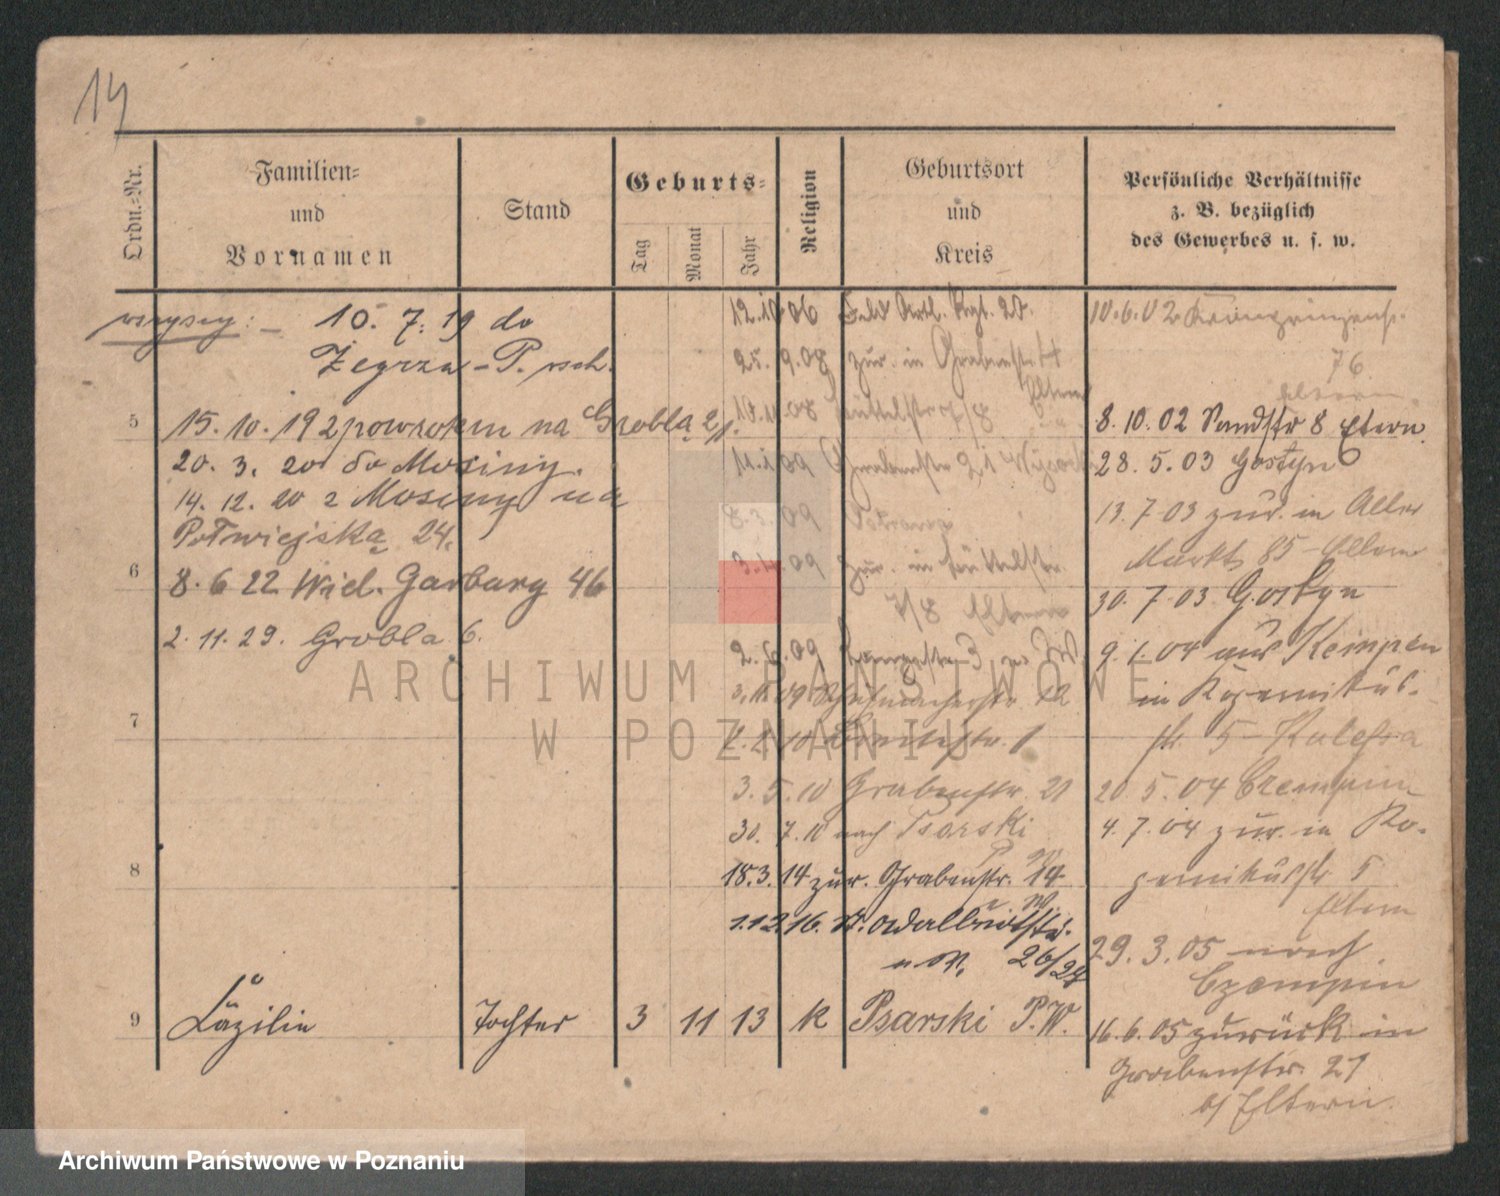 14
Ordn.-Nr.
Familien-
und
Vornamen
Stand
Geburts-
Tag
Monat
Jahr
Religion
Geburtsort
und
Kreis
Persönliche Verhältnisse
z. B. bezüglich
des Gewerbes u. s. w.
wszyscy: - 10. 7. 19 do
Żegrza - P. wsch.
5
15. 10. 19 z powrotem na Grobla 21.
20. 3. 20 do Mosiny.
14. 12. 20 z Mosiny na
Półwiejska 24.
6
8. 6 22 Wiel. Garbary 46
2. 11. 29. Grobla 6.
7
8
9
Cäzilie
Tochter
3
11
13
k
Psarski P.W.
12.10 06 Feld Artl. Rgt. 20.
25. 9.08 zur. in Grabenstr.
Eltern
10.11.08 Büttelstr 7/8
11.1 09 Grabenstr 21
8.3.09 Ostrowo
3.4.09 zur. in Büttelstr.
7/8 Eltern
2.6.09
3.11.09 12
10
3.5.10 Grabenstr. 21
30. 7.10 nach Psarski
18.3.14 zur. Grabenstr. 14
1.12.16. St. Adalbertstr.
26/27
10.6.02 Kronprinzenstr.
76
Eltern
8.10.02 Sandstr 8 Eltern.
28. 5.03 Gostyn
13.7 03 zur. in Alter
Markt 85 - Eltern
30. 7.03 Gostyn
9.1.04 aus Kempen
in Kopernikus-
str 5 -
20.5.04 Czempin
4.7.04 zur. in Ko-
pernikusstr 5
Eltern
29. 3.05 nach
Czempin
16.6.05 zurück in
Grabenstr. 21
b/ Eltern.
ARCHIWUM PAŃSTWOWE
W POZNANIU
Archiwum Państwowe w Poznaniu